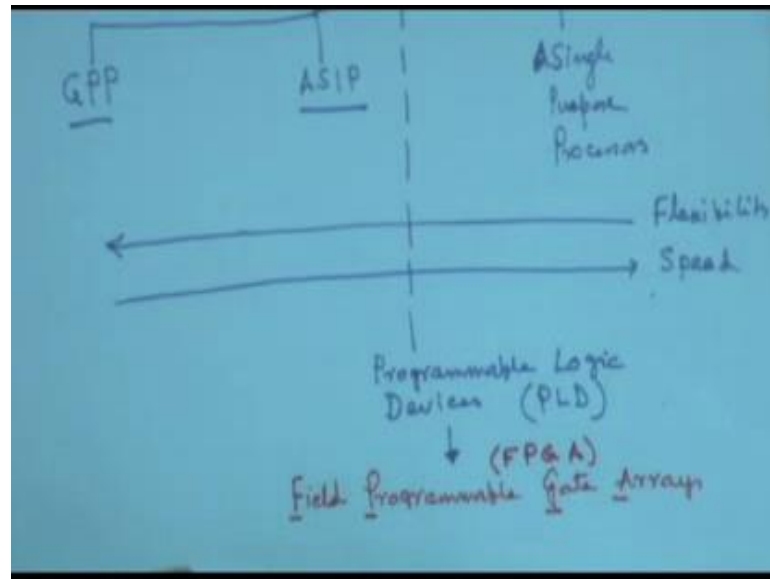 GPP
ASIP
Single
Purpose
Processors
Flexibility
Speed
Programmable Logic
Devices (PLD)
(FPGA)
Field Programmable Gate Arrays